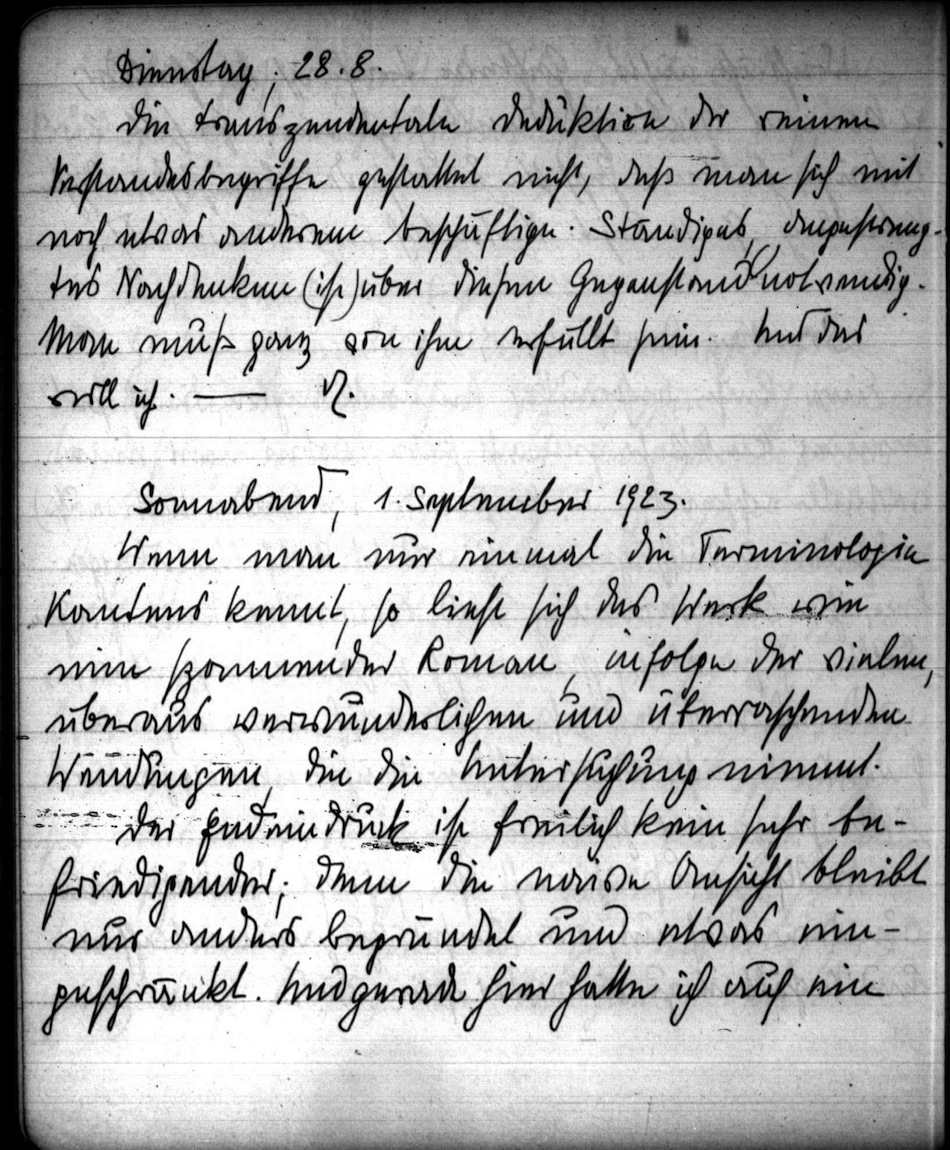 Dienstag, 28.8.
Die transzendentale Deduktion der reinen
Verstandesbegriffe gestattet nicht, daß man sich mit
noch etwas anderem beschäftige. Ständiges, angestreng-
tes Nachdenken (ist) über diesen Gegenstand notwendig.
Man muß ganz von ihm erfüllt sein. Und das
will ich. —
Sonnabend, 1. September 1923.
Wenn man nur einmal die Terminologie
Kantens kennt, so liest sich das Werk wie
ein spannender Roman, infolge der vielen,
überaus verwunderlichen und überraschenden
Wendungen, die die Untersuchung nimmt.
Der Endeindruck ist freilich kein sehr be-
friedigender; denn die naive Ansicht bleibt
nur anders begründet und etwas ein-
geschränkt. Und gerade hier hatte ich auf ein